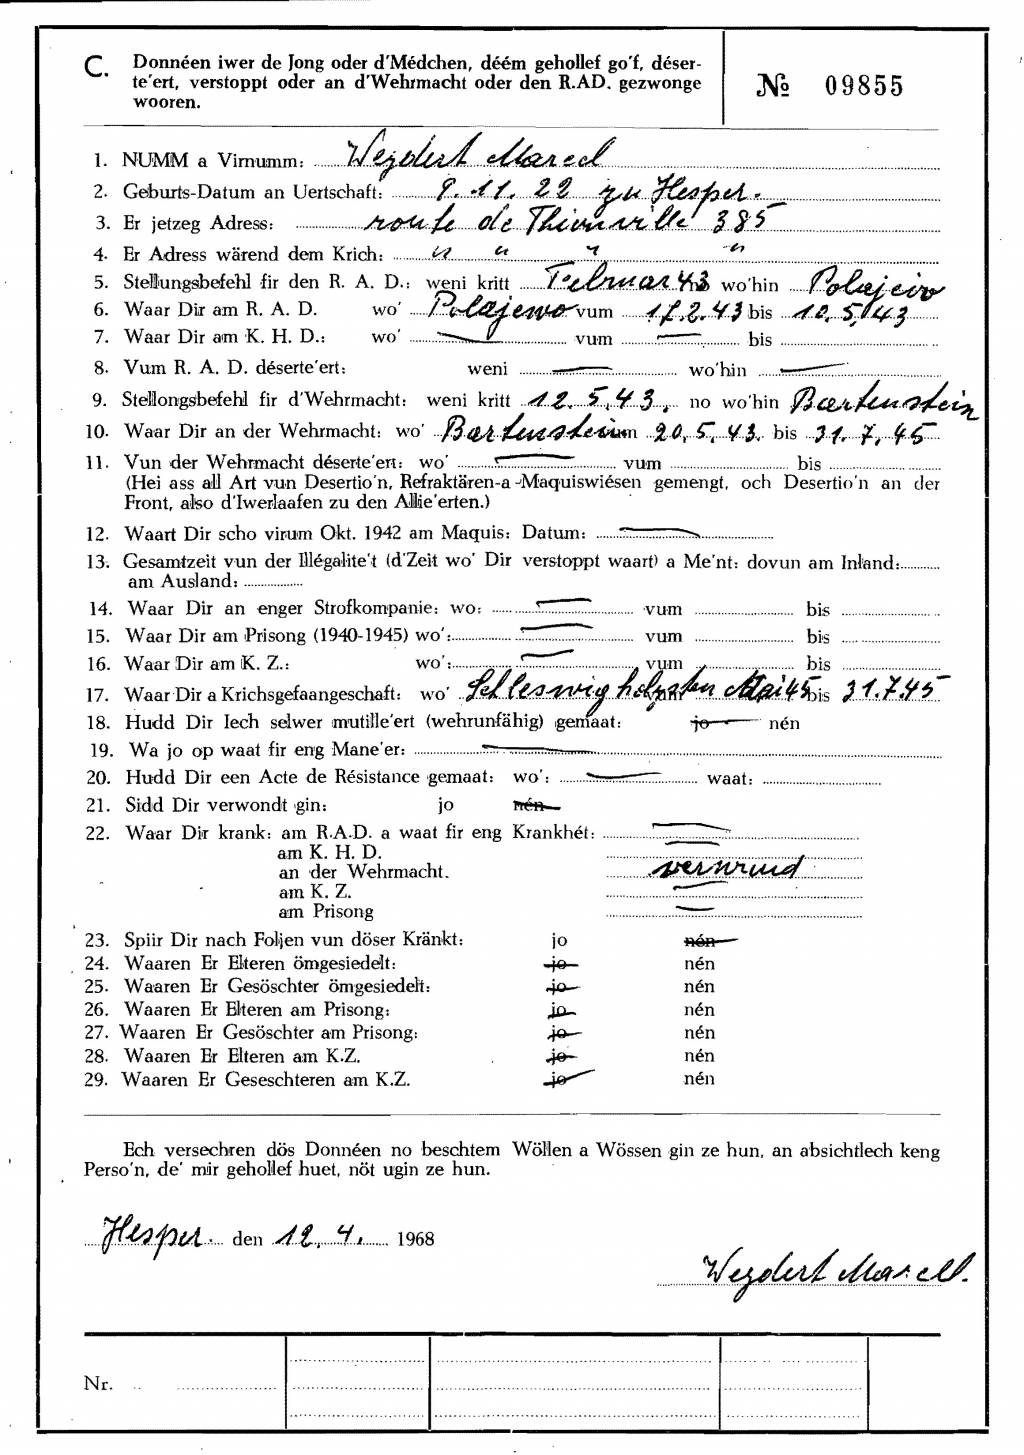 C. Donnéen iwer de Jong oder d'Médchen, déém gehollef go'f, déser-
te'ert, verstoppt oder an d'Wehrmacht oder den R.AD. gezwonge
wooren.
№ 09855
1. NUMM a Virnumm: Weydert Marcel
2. Geburts-Datum an Uertschaft: 9.11.22 zu Hesper.
3. Er jetzeg Adress: route de Thionville 385
4. Er Adress wärend dem Krich: " " " "
5. Stellungsbefehl fir den R. A. D.: weni kritt Februar 43 no wo'hin Polajewo
6. Waar Dir am R. A. D. wo' Polajewo vum 17.2.43 bis 10.5.43
7. Waar Dir am K. H. D.: wo' — vum — bis
8. Vum R. A. D. déserte'ert: weni — wo'hin —
9. Stellongsbefehl fir d'Wehrmacht: weni kritt 12.5.43. no wo'hin Bartenstein
10. Waar Dir an der Wehrmacht: wo' Bartenstein vum 20.5.43. bis 31.7.45
11. Vun der Wehrmacht déserte'ert: wo' — vum bis
(Hei ass all Art vun Desertio'n, Refraktären-a -Maquiswiésen gemengt, och Desertio'n an der
Front, also d'Iwerlaafen zu den Allie'erten.)
12. Waart Dir scho virum Okt. 1942 am Maquis: Datum: —
13. Gesamtzeit vun der Illégalite't (d'Zeit wo' Dir verstoppt waart) a Me'nt: dovun am Inland:
am Ausland:
14. Waar Dir an enger Strofkompanie: wo: — vum bis
15. Waar Dir am Prisong (1940-1945) wo': — vum bis
16. Waar Dir am K. Z.: wo': — vum bis
17. Waar Dir a Krichsgefaangeschaft: wo' Schleswig holzsten vum Mai 45 bis 31.7.45
18. Hudd Dir Iech selwer mutille'ert (wehrunfähig) gemaat: jo nén
19. Wa jo op waat fir eng Mane'er: —
20. Hudd Dir een Acte de Résistance gemaat: wo': — waat:
21. Sidd Dir verwondt gin: jo nén
22. Waar Dir krank: am R.A.D. a waat fir eng Krankhét: —
am K. H. D. —
an der Wehrmacht. verwund
am K. Z. —
am Prisong —
23. Spiir Dir nach Foljen vun döser Kränkt: jo nén
24. Waaren Er Elteren ömgesiedelt: jo nén
25. Waaren Er Gesöschter ömgesiedelt: jo nén
26. Waaren Er Elteren am Prisong: jo nén
27. Waaren Er Gesöschter am Prisong: jo nén
28. Waaren Er Elteren am K.Z. jo nén
29. Waaren Er Geseschteren am K.Z. jo nén
Ech versechren dös Donnéen no beschtem Wöllen a Wössen gin ze hun, an absichtlech keng
Perso'n, de' mir gehollef huet, nöt ugin ze hun.
Hesper. den 12.4. 1968
Weydert Marcel.
Nr.